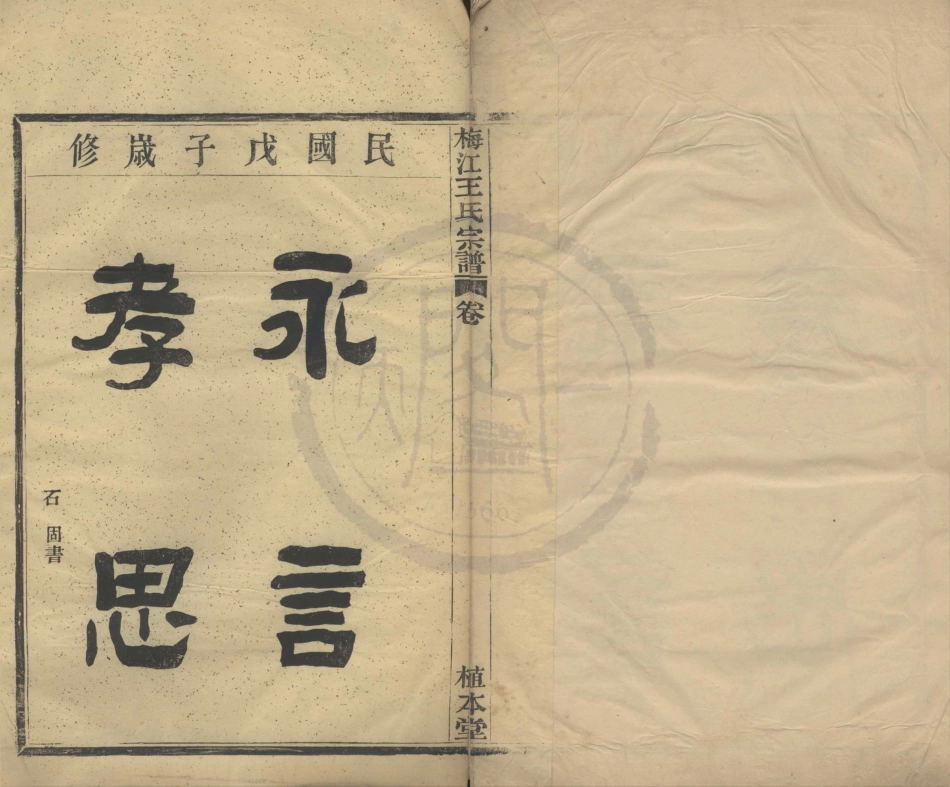 梅江王氏宗譜
卷
植本堂
民國戊子歲修
永言
孝思
石固書